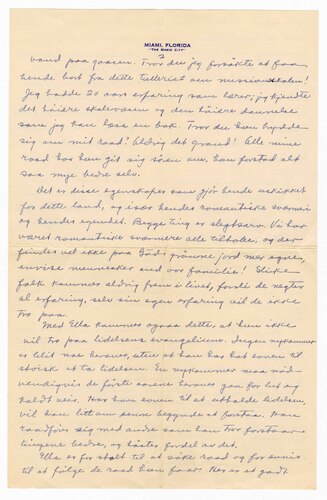 MIAMI, FLORIDA
"THE MAGIC CITY"
2
vand paa gaasen. Tror du jeg forsökte at faa
hende bort fra dette tulleriet om missionsskolen!
Jeg hadde 20 aars erfaring som lærer; jeg kjendte
det höiere skolevæsen og den höiere dannelse
som jeg kan læse en bok. Tror du hun brydde
sig om mit raad? Aldrig det grand! Alle mine
raad hos hun git sig sören om, hun forstod alt
saa mye bedre selv.
Det er disse egenskaper som gjör hende uskikket
for dette land, og især hendes romantiske sværmeri
og hendes egenhet. Begge ting er slegtsarv. Vi har
været romantiske sværmere alle tilhobe, og der
findes vel ikke paa Guds grönne jord mer egne,
envise mennesker end vor familie! Slike
folk kommer aldrig frem i livet, fordi de negter
al erfaring, selv sin egen erfaring vil de ikke
tro paa.
Med Ella kommer ogsaa dette at hun ikke
vil tro paa lidelsens evangelium. Ingen nykommer
er blit noe herover, uten at han har hat evnen til
stoisk at ta lidelsen. En nykommer maa nöd-
vendigvis de förste aarene herover gaa for lut og
koldt vand. Har han evnen til at utholde lidelsen,
vil han litt om senn begynde at forstaa. Han
raadförer sig med andre som han tror forstaar
tingene bedre, og höster fordel av det.
Ella er for stolt til at söke raad og for envis
til at fölge de raad hun faar. Her er et godt